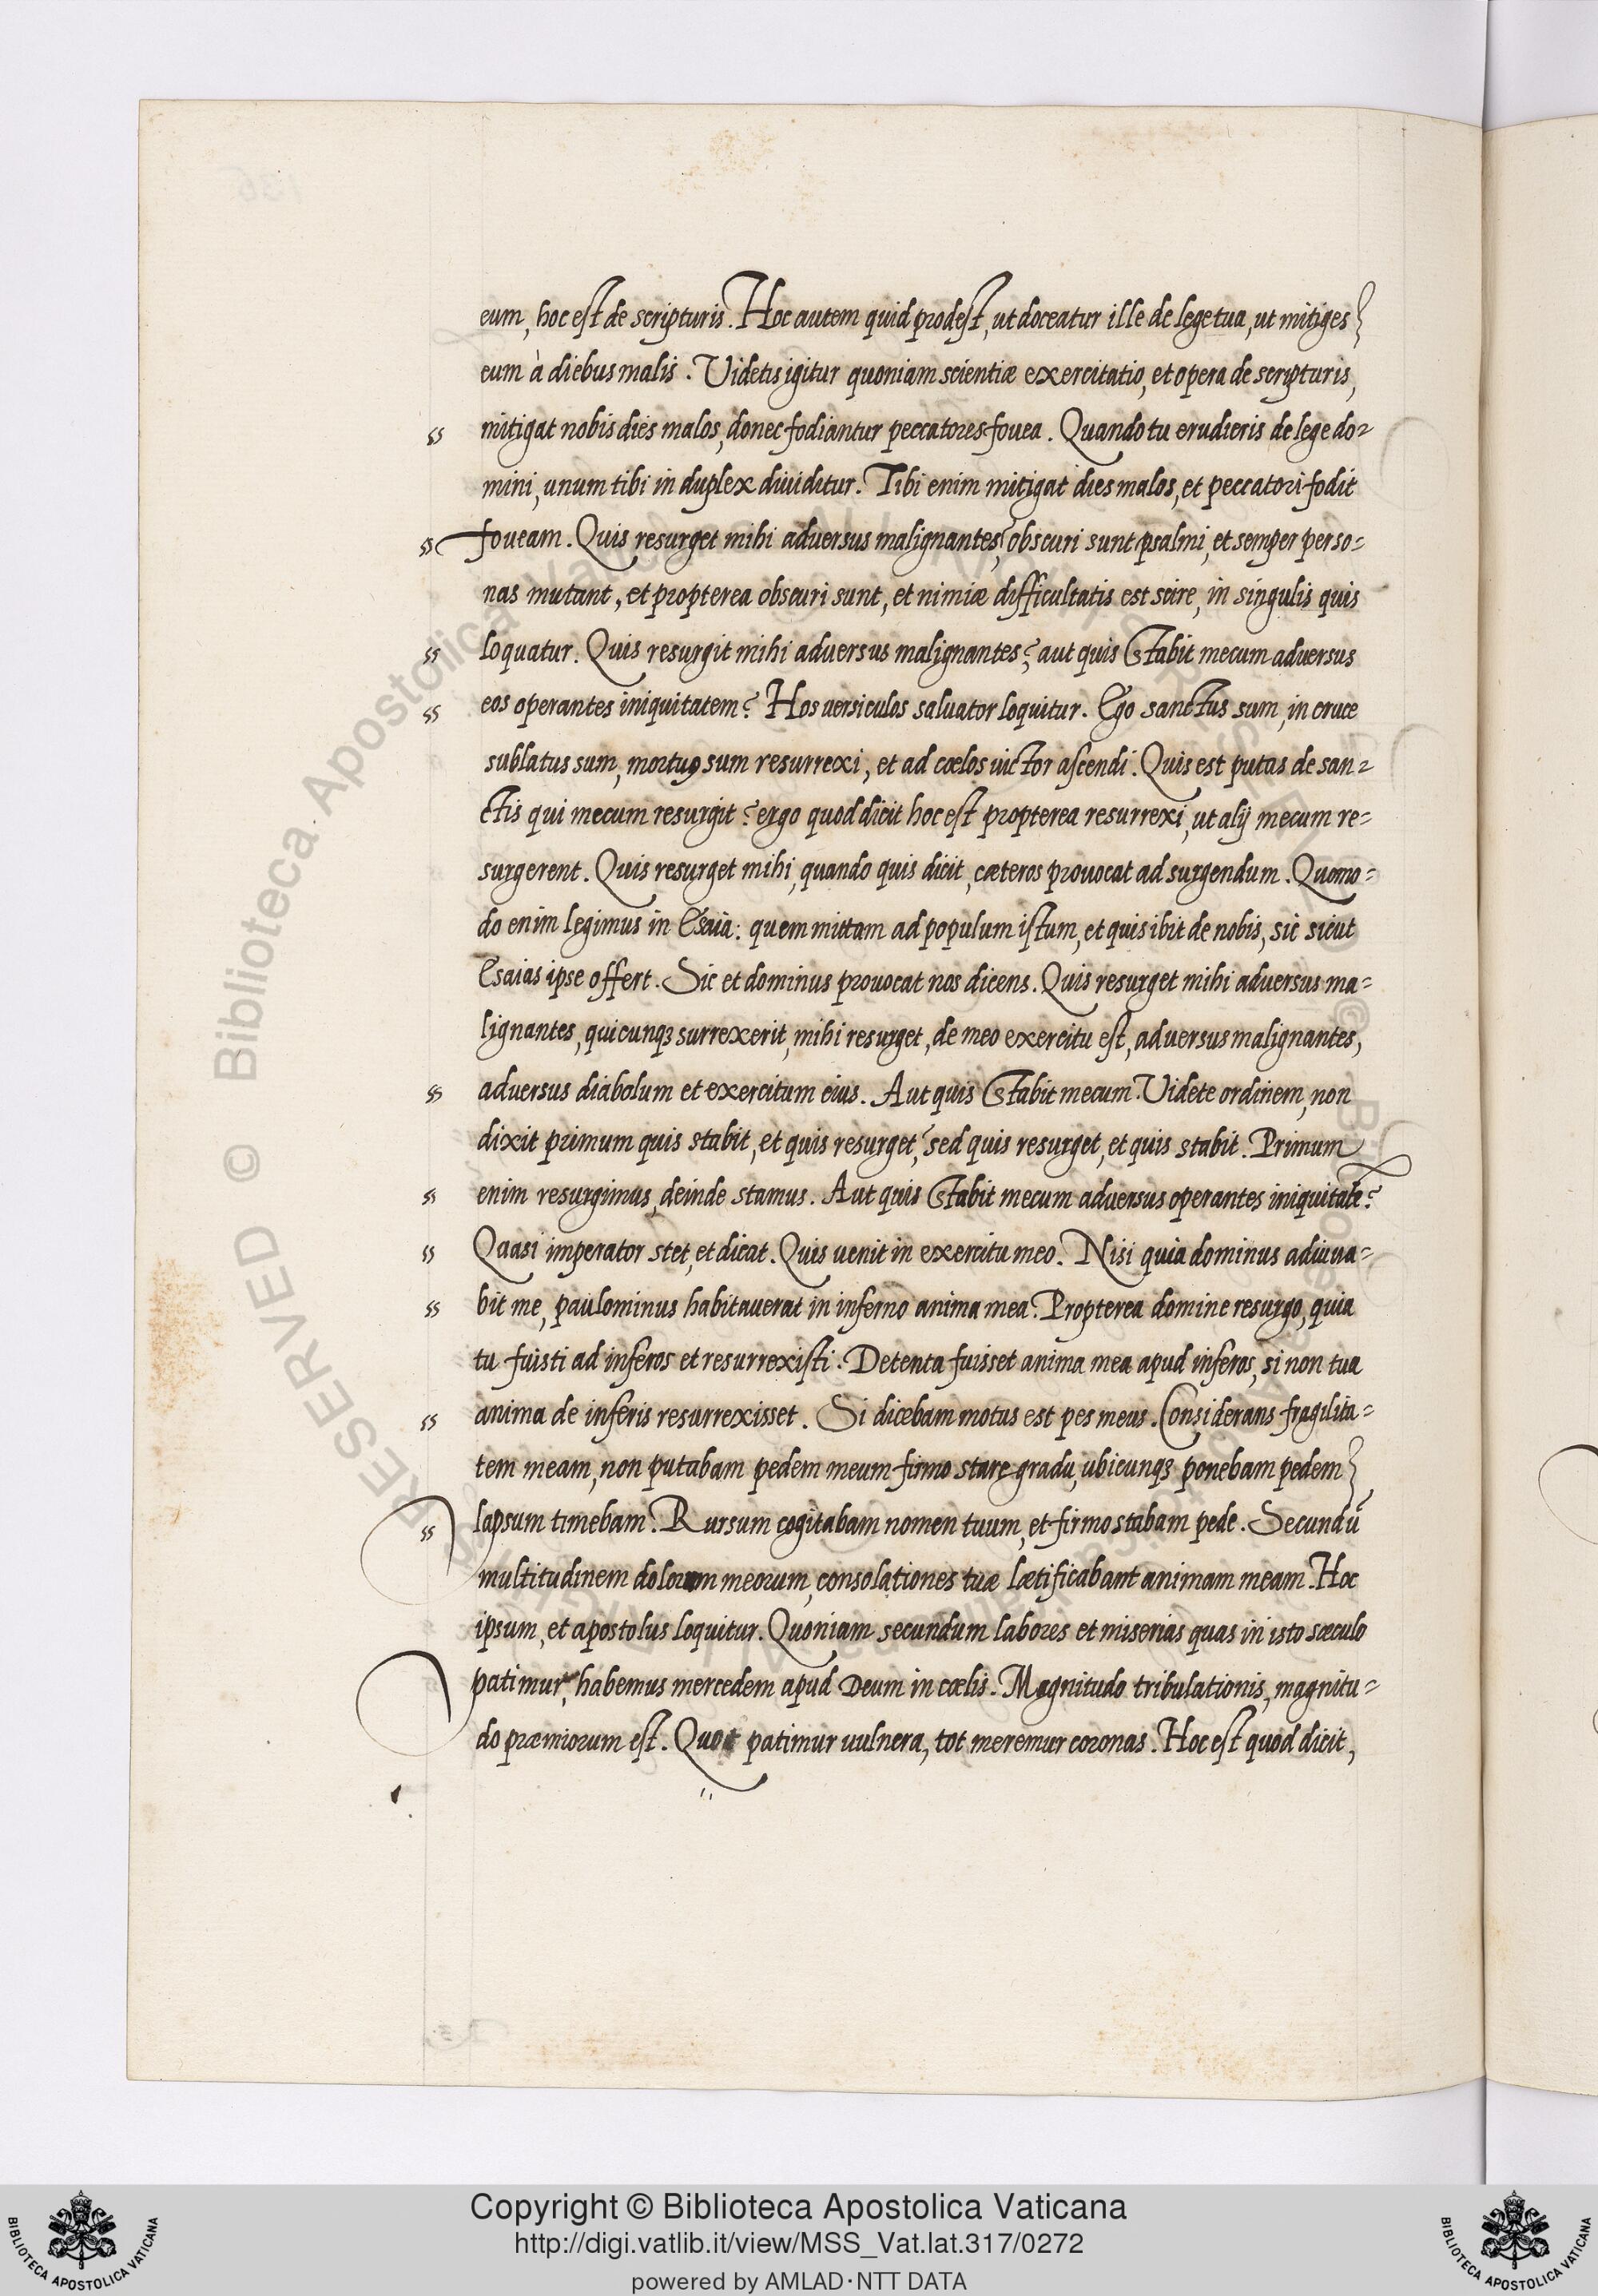 eum, hoc est de scripturis. Hoc autem quid prodest, ut doceatur ille de lege tua, ut mitiges
eum à diebus malis. Videtis igitur quoniam scientiæ exercitatio, et opera de scripturis,
ss mitigat nobis dies malos, donec fodiantur peccatores fouea. Quando tu erudieris de lege do-
mini, unum tibi in duplex diuiditur. Tibi enim mitigat dies malos, et peccatori fodit
ss foueam. Quis resurget mihi adversus malignantes? obscuri sunt psalmi, et semper perso-
nas mutant, et propterea obscuri sunt, et nimiæ difficultatis est scire, in singulis quis
ss loquatur. Quis resurgit mihi adversus malignantes? aut quis stabit mecum adversus
ss eos operantes iniquitatem? Hos uersiculos saluator loquitur. Ego sanctus sum, in cruce
sublatus sum, mortuꝯ sum resurrexi, et ad cœlos uictor ascendi. Quis est putas de san-
ctis qui mecum resurgit? ergo quod dicit hoc est propterea resurrexi, ut alij mecum re-
surgerent. Quis resurget mihi, quando quis dicit, cæteros prouocat ad surgendum. Quomo-
do enim legimus in Esaia: quem mittam ad populum istum, et quis ibit de nobis, sic sicut
Esaias ipse offert. Sic et dominus prouocat nos dicens. Quis resurget mihi adversus ma-
lignantes, quicunqꝫ surrexerit, mihi resurget, de meo exercitu est, adversus malignantes,
ss adversus diabolum et exercitum eius. Aut quis stabit mecum. Videte ordinem, non
dixit primum quis stabit, et quis resurget, sed quis resurget, et quis stabit. Primum
ss enim resurgimus, deinde stamus. Aut quis stabit mecum adversus operantes iniquitatē?
ss Quasi imperator stet, et dicat. Quis uenit in exercitu meo. Nisi quia dominus adiuua-
ss bit me, paulominus habitauerat in inferno anima mea. Propterea domine resurgo, quia
tu fuisti ad inferos et resurrexisti. Detenta fuisset anima mea apud inferos, si non tua
ss anima de inferis resurrexisset. Si dicebam motus est pes meus. Considerans fragilita-
tem meam, non putabam pedem meum firmo stare gradu, ubicunqꝫ ponebam pedem
ss lapsum timebam. Rursum cogitabam nomen tuum, et firmo stabam pede. Secundū
multitudinem dolorum meorum, consolationes tuæ lætificabant animam meam. Hoc
ipsum, et apostolus loquitur. Quoniam secundum labores et miserias quas in isto sæculo
patimur, habemus mercedem apud Deum in cœlis. Magnitudo tribulationis, magnitu-
do præmiorum est. Quot patimur uulnera, tot meremur coronas. Hoc est quod dicit,
© Biblioteca Apostolica Vaticana
RESERVED
BIBLIOTECA APOSTOLICA VATICANA
Copyright © Biblioteca Apostolica Vaticana
http://digi.vatlib.it/view/MSS_Vat.lat.317/0272
powered by AMLAD·NTT DATA
BIBLIOTECA APOSTOLICA VATICANA